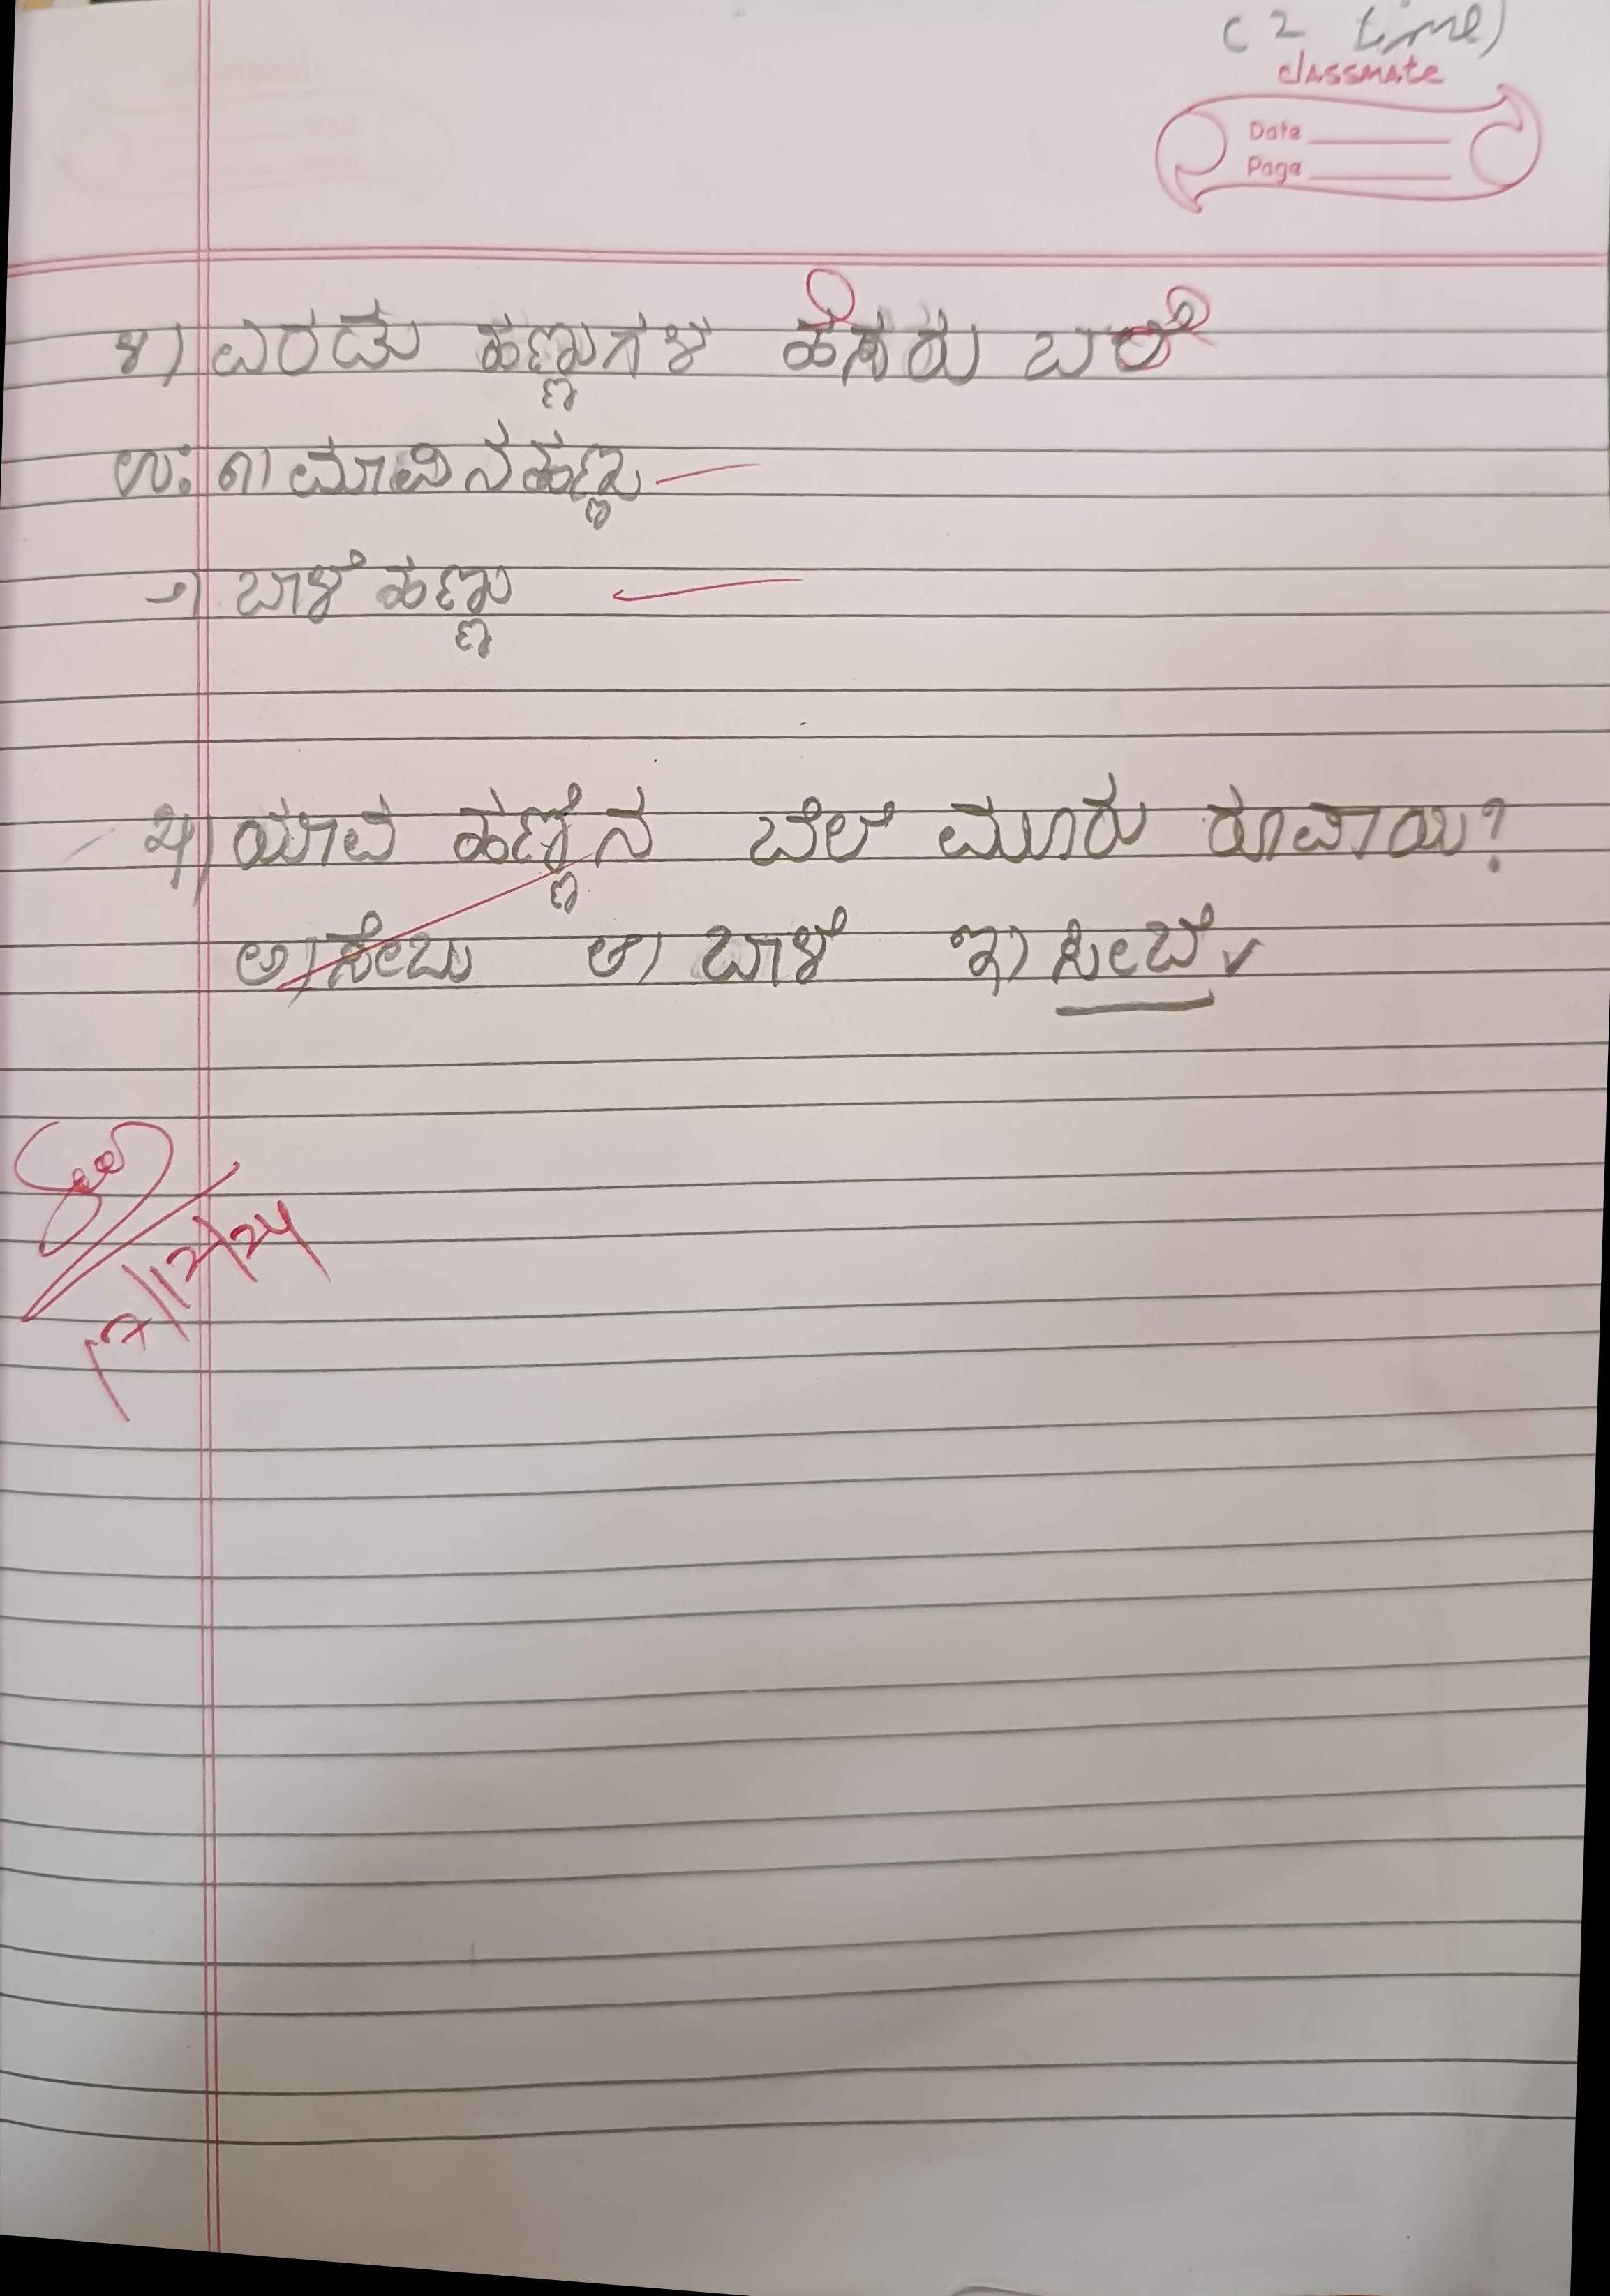 ( 2 time)
classmate
Date
Page
೪) ಎರಡು ಹಣ್ಣುಗಳ ಹೆಸರು ಬರೆ
ಉ: ೧) ಮಾವಿನಹಣ್ಣು
೨) ಬಾಳೆಹಣ್ಣು
೫) ಯಾವ ಹಣ್ಣಿನ ಬೆಲೆ ಮೂರು ರೂಪಾಯಿ?
ಅ) ಸೇಬು ಆ) ಬಾಳೆ ಇ) ಸೀಬೆ ✓
17/12/24